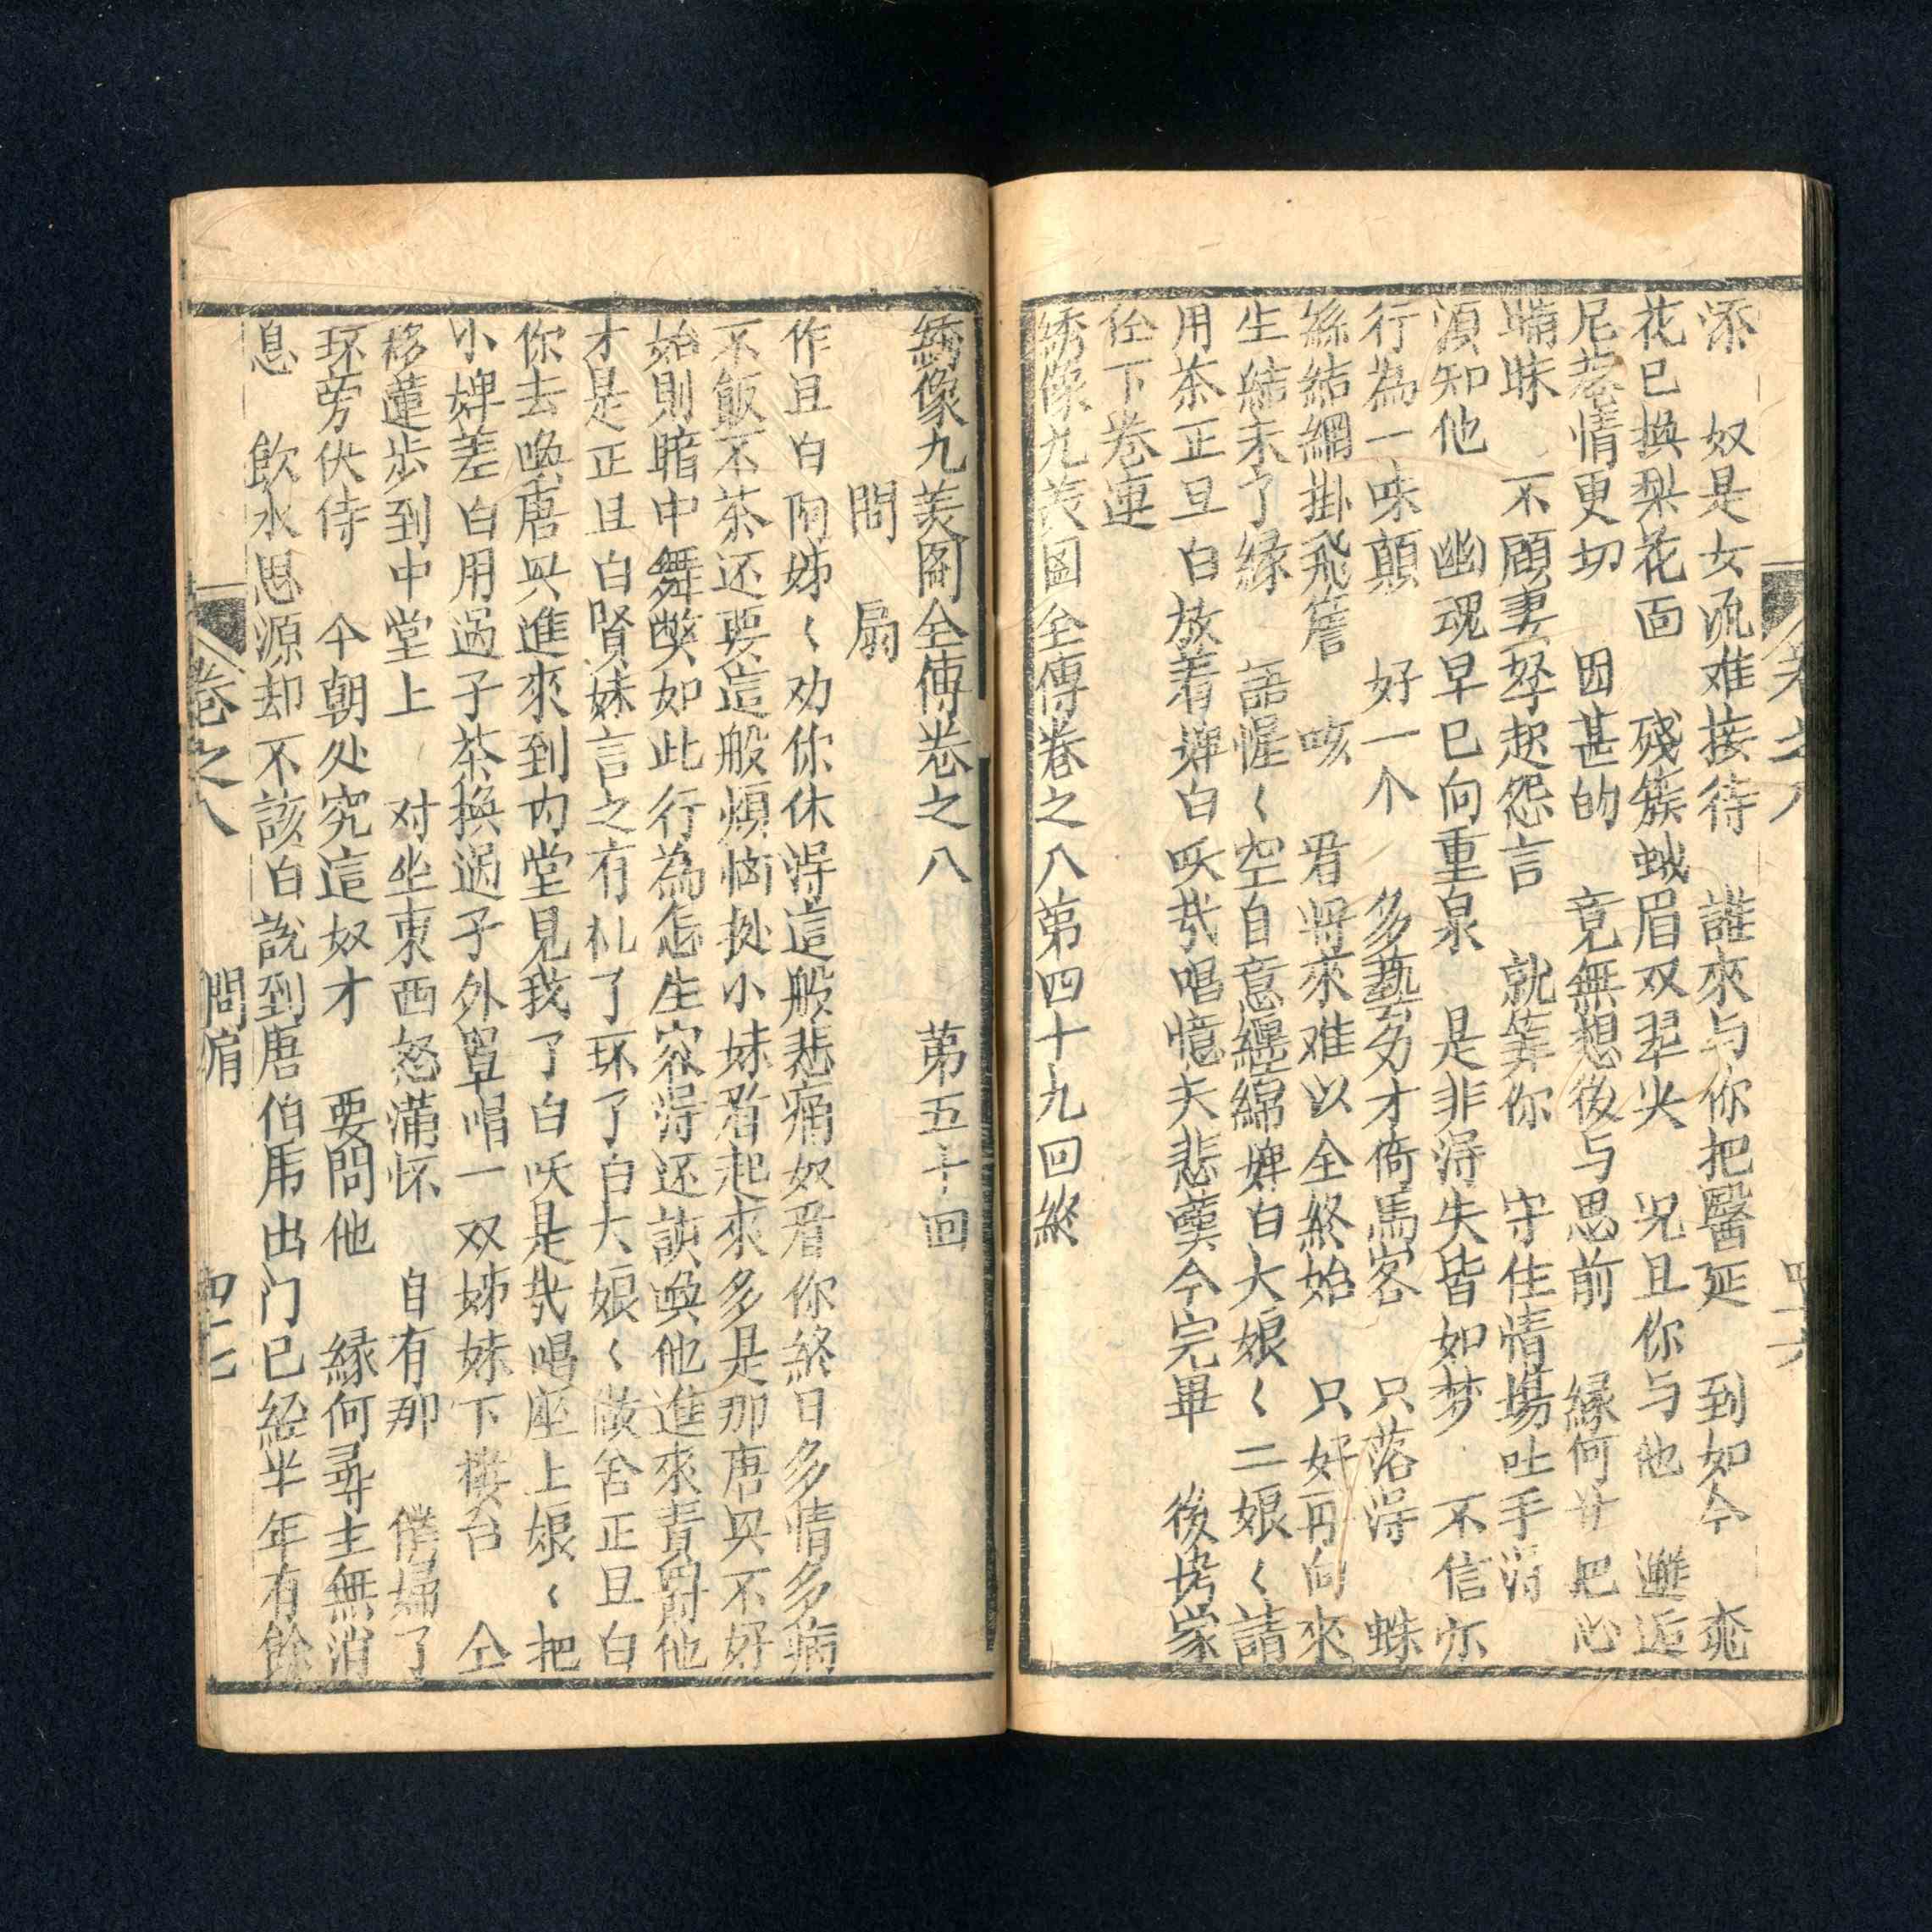 添　奴是女流难接待　誰來与你把醫延　到如今　
花已換梨花面　殘簇蛾眉双翠尖　况且你与他　邂逅
尼惹情更切　因甚的　竟無想後与思前　緣何廿把心
　不顧妻孥起怨言　就筭你　守住情場吐手淂
須知他　幽魂早已向重泉　是非淂失皆如梦　不信亦
行為一味顛　好一个　多藝多才倚馬客　只落淂　蛛
絲結網掛飛簷　咳　看將來难以全終始　只好再向來
生結未了緣　語惺〱空自意纏綿婢白大娘〱二娘〱請
用茶正旦白放着婢白吷㢤唱憶夫悲嘆今完畢　後拷家
在下卷連
綉像九美图全傳卷之八第四十九回終
卷之八　四十六
綉像九美圖全傳卷之八　第五十回
問　扇
作旦白阿姊〱劝你休淂這般悲痛奴看你終日多情多病
不飯不茶还要這般煩惱扵小妹看起來多是那唐興不好
始則暗中舞獘如此行為怎生容淂还該喚他進來責罸他
才是正旦白賢妹言之有札了环了白大娘〱啟舍正旦白
你去喚唐興進來到内堂見我了白吷是㢤唱座上娘〱把
小婢差白用過子茶換過子外罩唱一双姊妹下樓台　仝
移蓮步到中堂上　对坐東西怒滿怀　自有那　僕婦了
环旁伏侍　今朝处究這奴才　要問他　緣何尋主無消
息　飲水思源却不該白說到唐伯虎出门已経半年有餘
卷之八　問扇　四十七